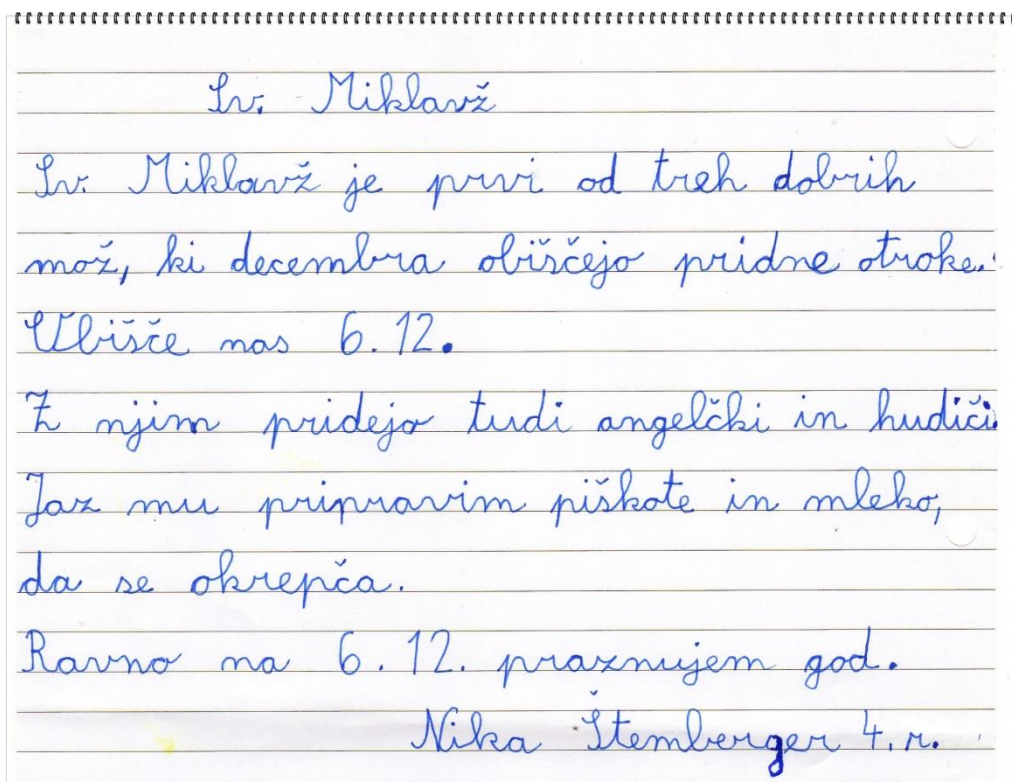 Sv. Miklavž
Sv. Miklavž je prvi od treh dobrih
mož, ki decembra obiščejo pridne otroke.
Obišče nas 6. 12.
Z njim pridejo tudi angelčki in hudiči.
Jaz mu pripravim piškote in mleko,
da se okrepča.
Ravno na 6. 12. praznujem god.
Nika Štemberger 4. r.